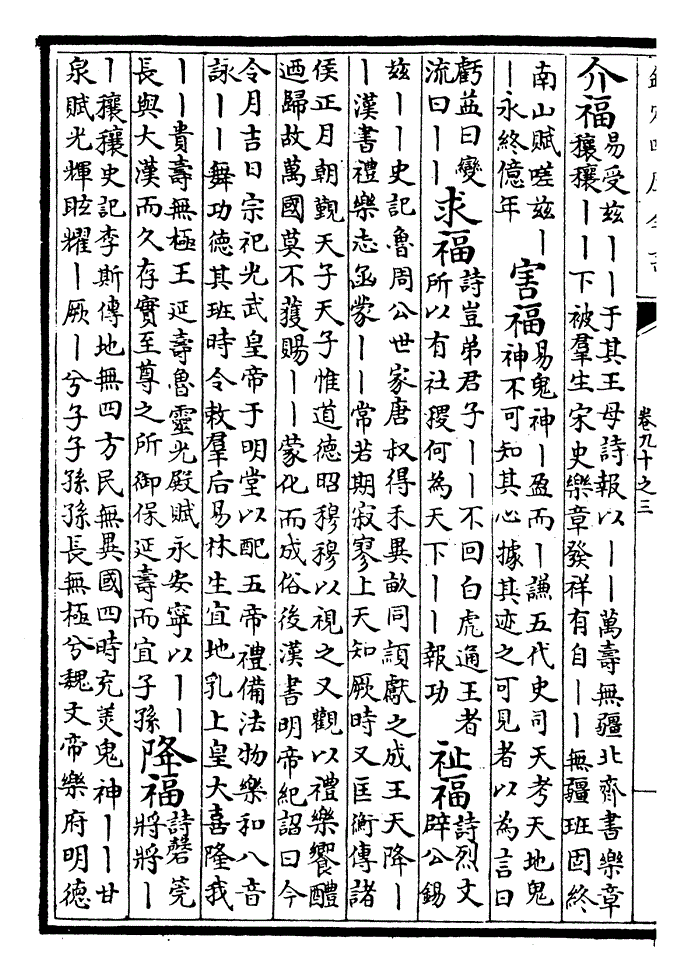 卷九十之三
介福 易受茲丨丨于其王母詩報以丨丨萬壽無疆北齊書樂章
穰穰丨丨下被羣生宋史樂章發祥有自丨丨無疆班固終
南山賦嗟茲丨
丨永終億年
害福 易鬼神丨盈而丨謙五代史司天考天地鬼
神不可知其心據其迹之可見者以為言曰
虧益曰變
流曰丨丨
求福 詩豈弟君子丨丨不回白虎通王者
所以有社稷何為天下丨丨報功
祉福 詩烈文
辟公錫
茲丨丨史記魯周公世家唐叔得禾異畝同頴獻之成王天降丨
丨漢書禮樂志函蒙丨丨常若期寂寥上天知厥時又匡衡傳諸
侯正月朝覲天子天子惟道德昭穆穆以視之又觀以禮樂饗醴
迺歸故萬國莫不獲賜丨丨蒙化而成俗後漢書明帝紀詔曰今
令月吉日宗祀光武皇帝于明堂以配五帝禮備法物樂和八音
詠丨丨舞功德其班時令敕羣后易林生宜地乳上皇大喜隆我
丨丨貴壽無極王延壽魯靈光殿賦永安寧以丨丨
長與大漢而久存實至尊之所御保延壽而宜子孫
降福 詩磬筦
將將丨
丨穰穰史記李斯傳地無四方民無異國四時充美鬼神丨丨甘
泉賦光輝眩耀丨厥丨兮子子孫孫長無極兮魏文帝樂府明德